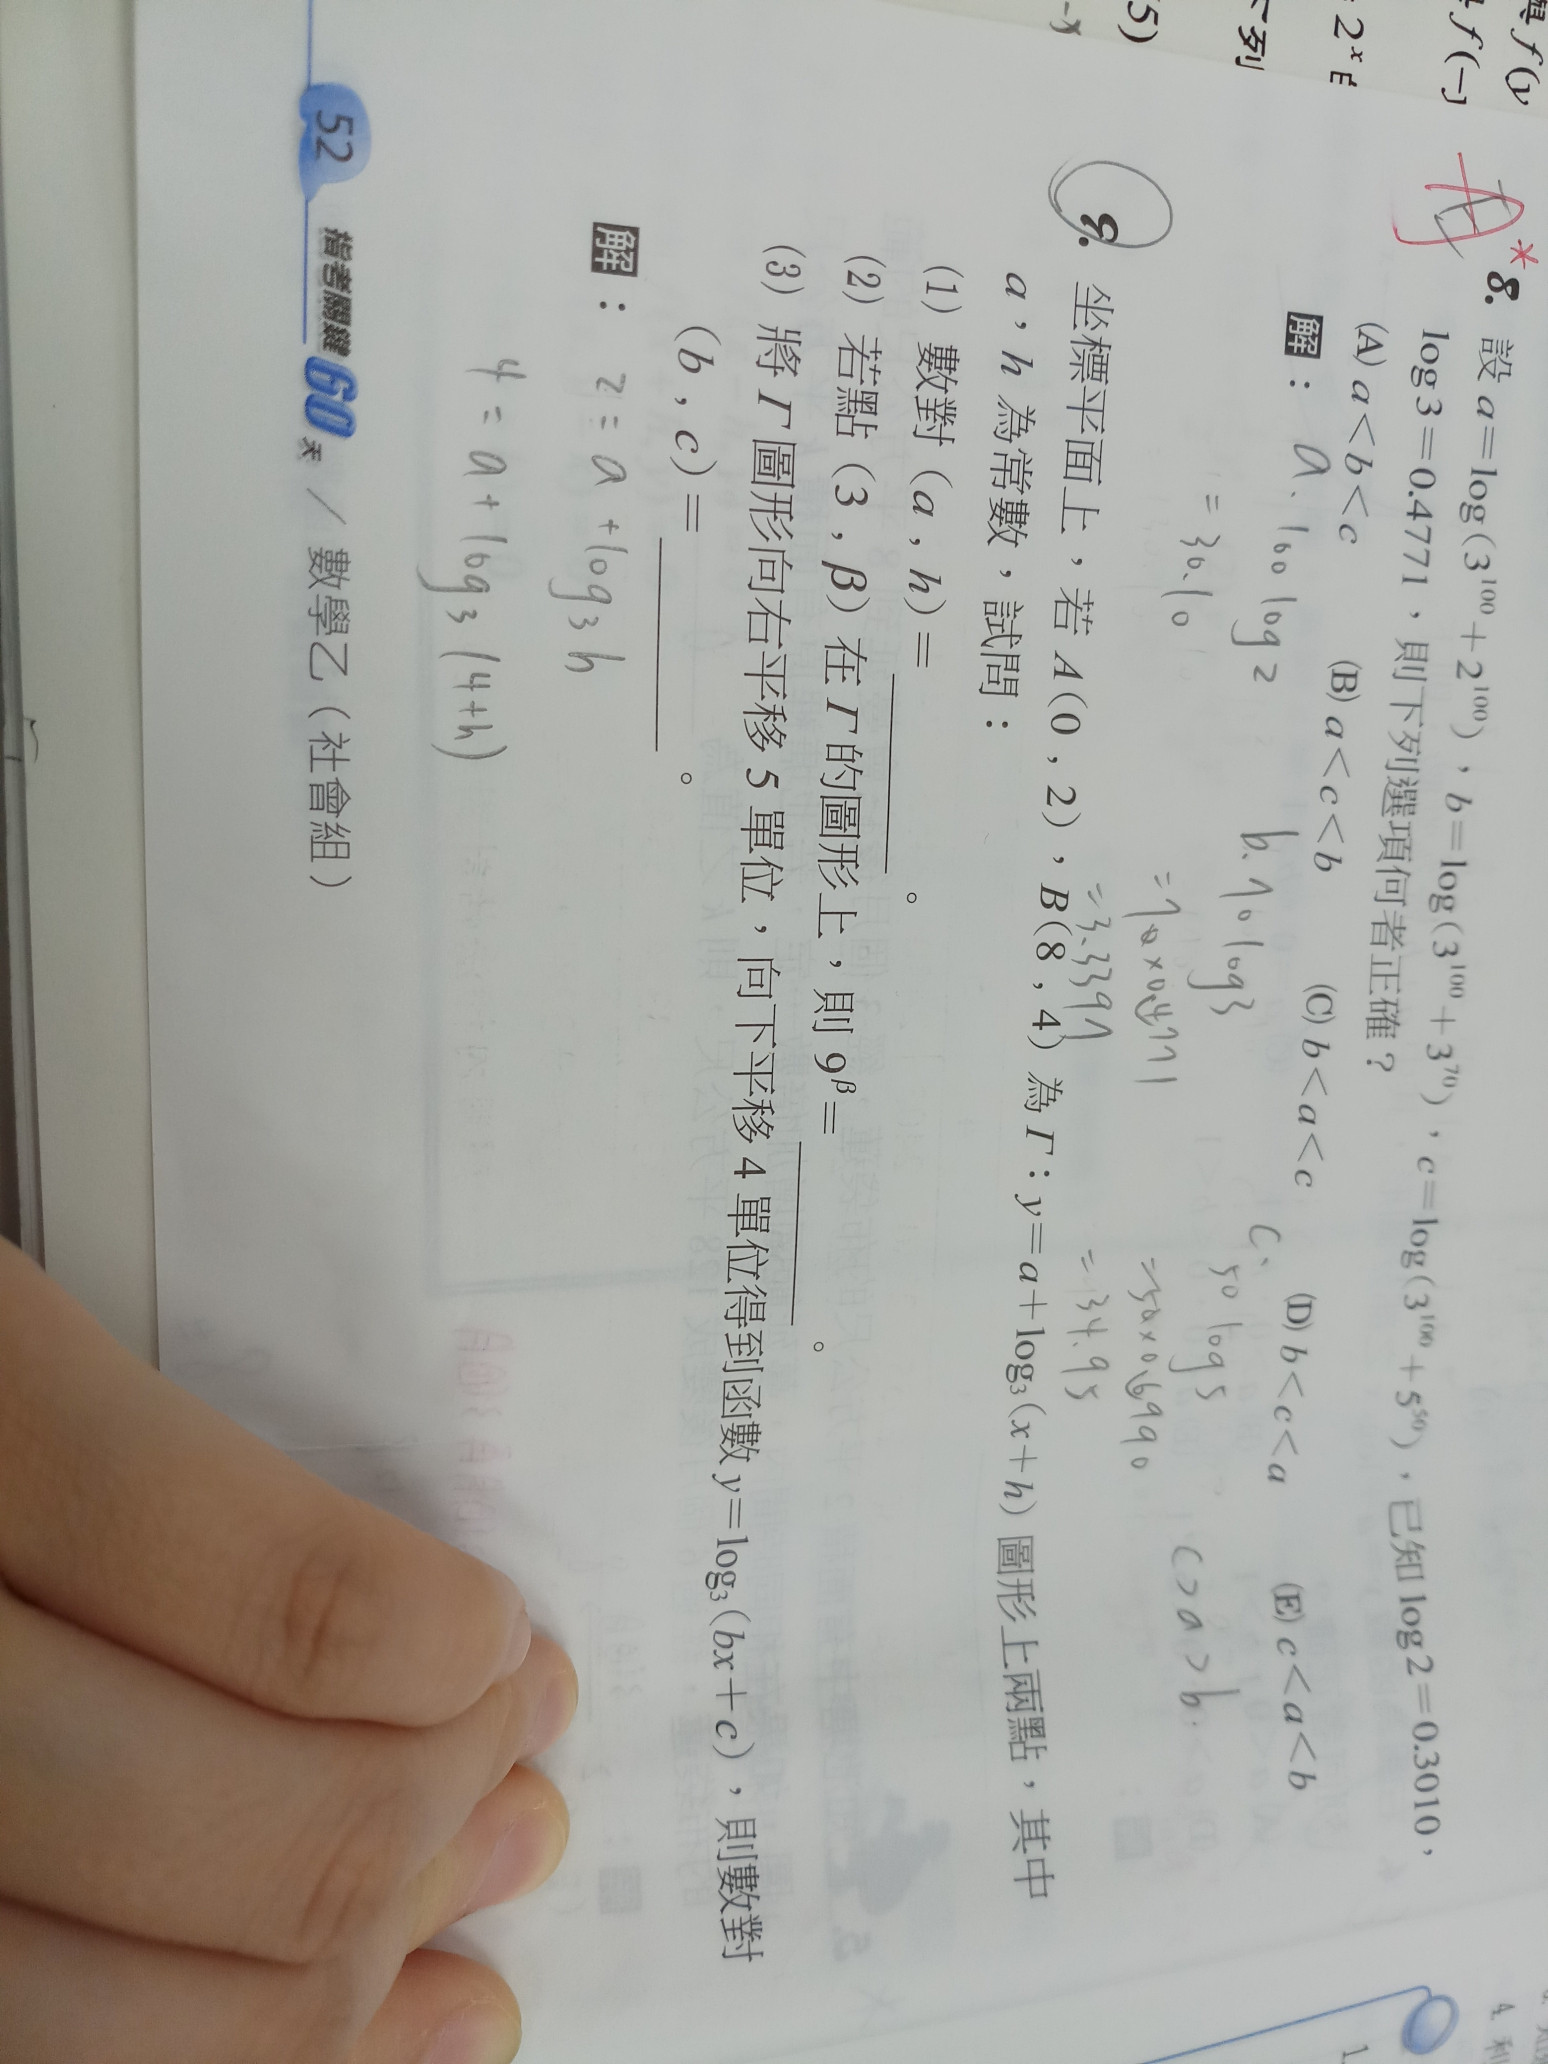 5)
*8. 設 a=log(3¹⁰⁰+2¹⁰⁰),b=log(3¹⁰⁰+3⁷⁰),c=log(3¹⁰⁰+5⁵⁰),已知 log2=0.3010,
log3=0.4771,則下列選項何者正確?
(A) a<b<c (B) a<c<b (C) b<a<c (D) b<c<a (E) c<a<b
解: a. 100 log 2 b. 70 log3 c. 50 log5 c>a>b
=30.10 =70×0.4771 =50×0.6990
=3.3397 =34.95
9. 坐標平面上,若 A(0,2),B(8,4) 為 Γ:y=a+log₃(x+h) 圖形上兩點,其中
a,h 為常數,試問:
(1) 數對 (a,h)=______。
(2) 若點 (3,β) 在 Γ 的圖形上,則 9^β=______。
(3) 將 Γ 圖形向右平移 5 單位,向下平移 4 單位得到函數 y=log₃(bx+c),則數對
(b,c)=______。
解: 2=a+log₃h
4=a+log₃(4+h)
52 指考關鍵60天/數學乙(社會組)